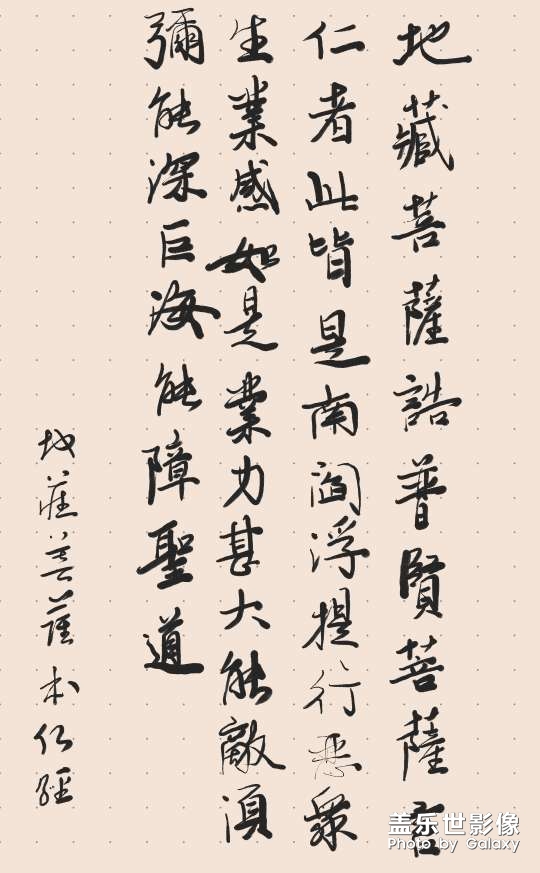 地藏菩薩誥普賢菩薩言
仁者此皆是南閻浮提行恶眾
生業感如是業力甚大能敵湏
彌能深巨海能障聖道
地藏菩薩本仏經
盖乐世影像
Photo by Galaxy